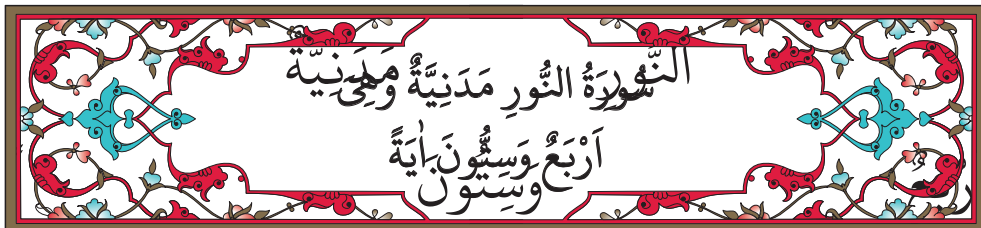 سُورَةُ النُّورِ مَدَنِيَّةٌ وَهِيَ
اَرْبَعٌ وَسِتُّونَ اٰيَةً